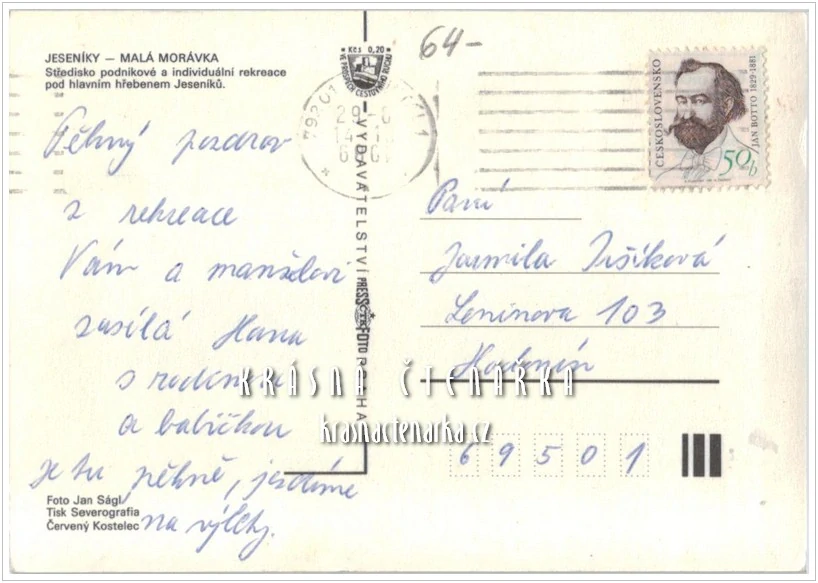 JESENÍKY — MALÁ MORÁVKA
Středisko podnikové a individuální rekreace
pod hlavním hřebenem Jeseníků.
Pěkný pozdrav
z rekreace
Vám a manželovi
zasílá Hana
s rodinou
a babičkou
Je tu pěkně, jezdíme
na výlety.
Foto Jan Ságl
Tisk Severografia
Červený Kostelec
Kčs 0,20
VE PROSPĚCH CESTOVNÍHO RUCHU
VYDAVATELSTVÍ PRESSFOTO PRAHA
ČTK
64-
ČESKOSLOVENSKO
JAN BOTTO 1829-1881
50h
Paní
Jarmila
Leninova 103
Hodonín
69501
KRÁSNÁ ČTENÁŘKA
krasnactenarka.cz